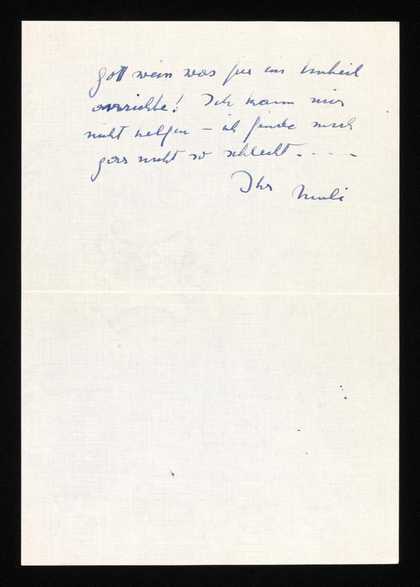 Gott weiss was für ein Unheil
anrichte! Ich kann mir
nicht helfen – ich finde mich
gar nicht so schlecht . . . .
Ihr